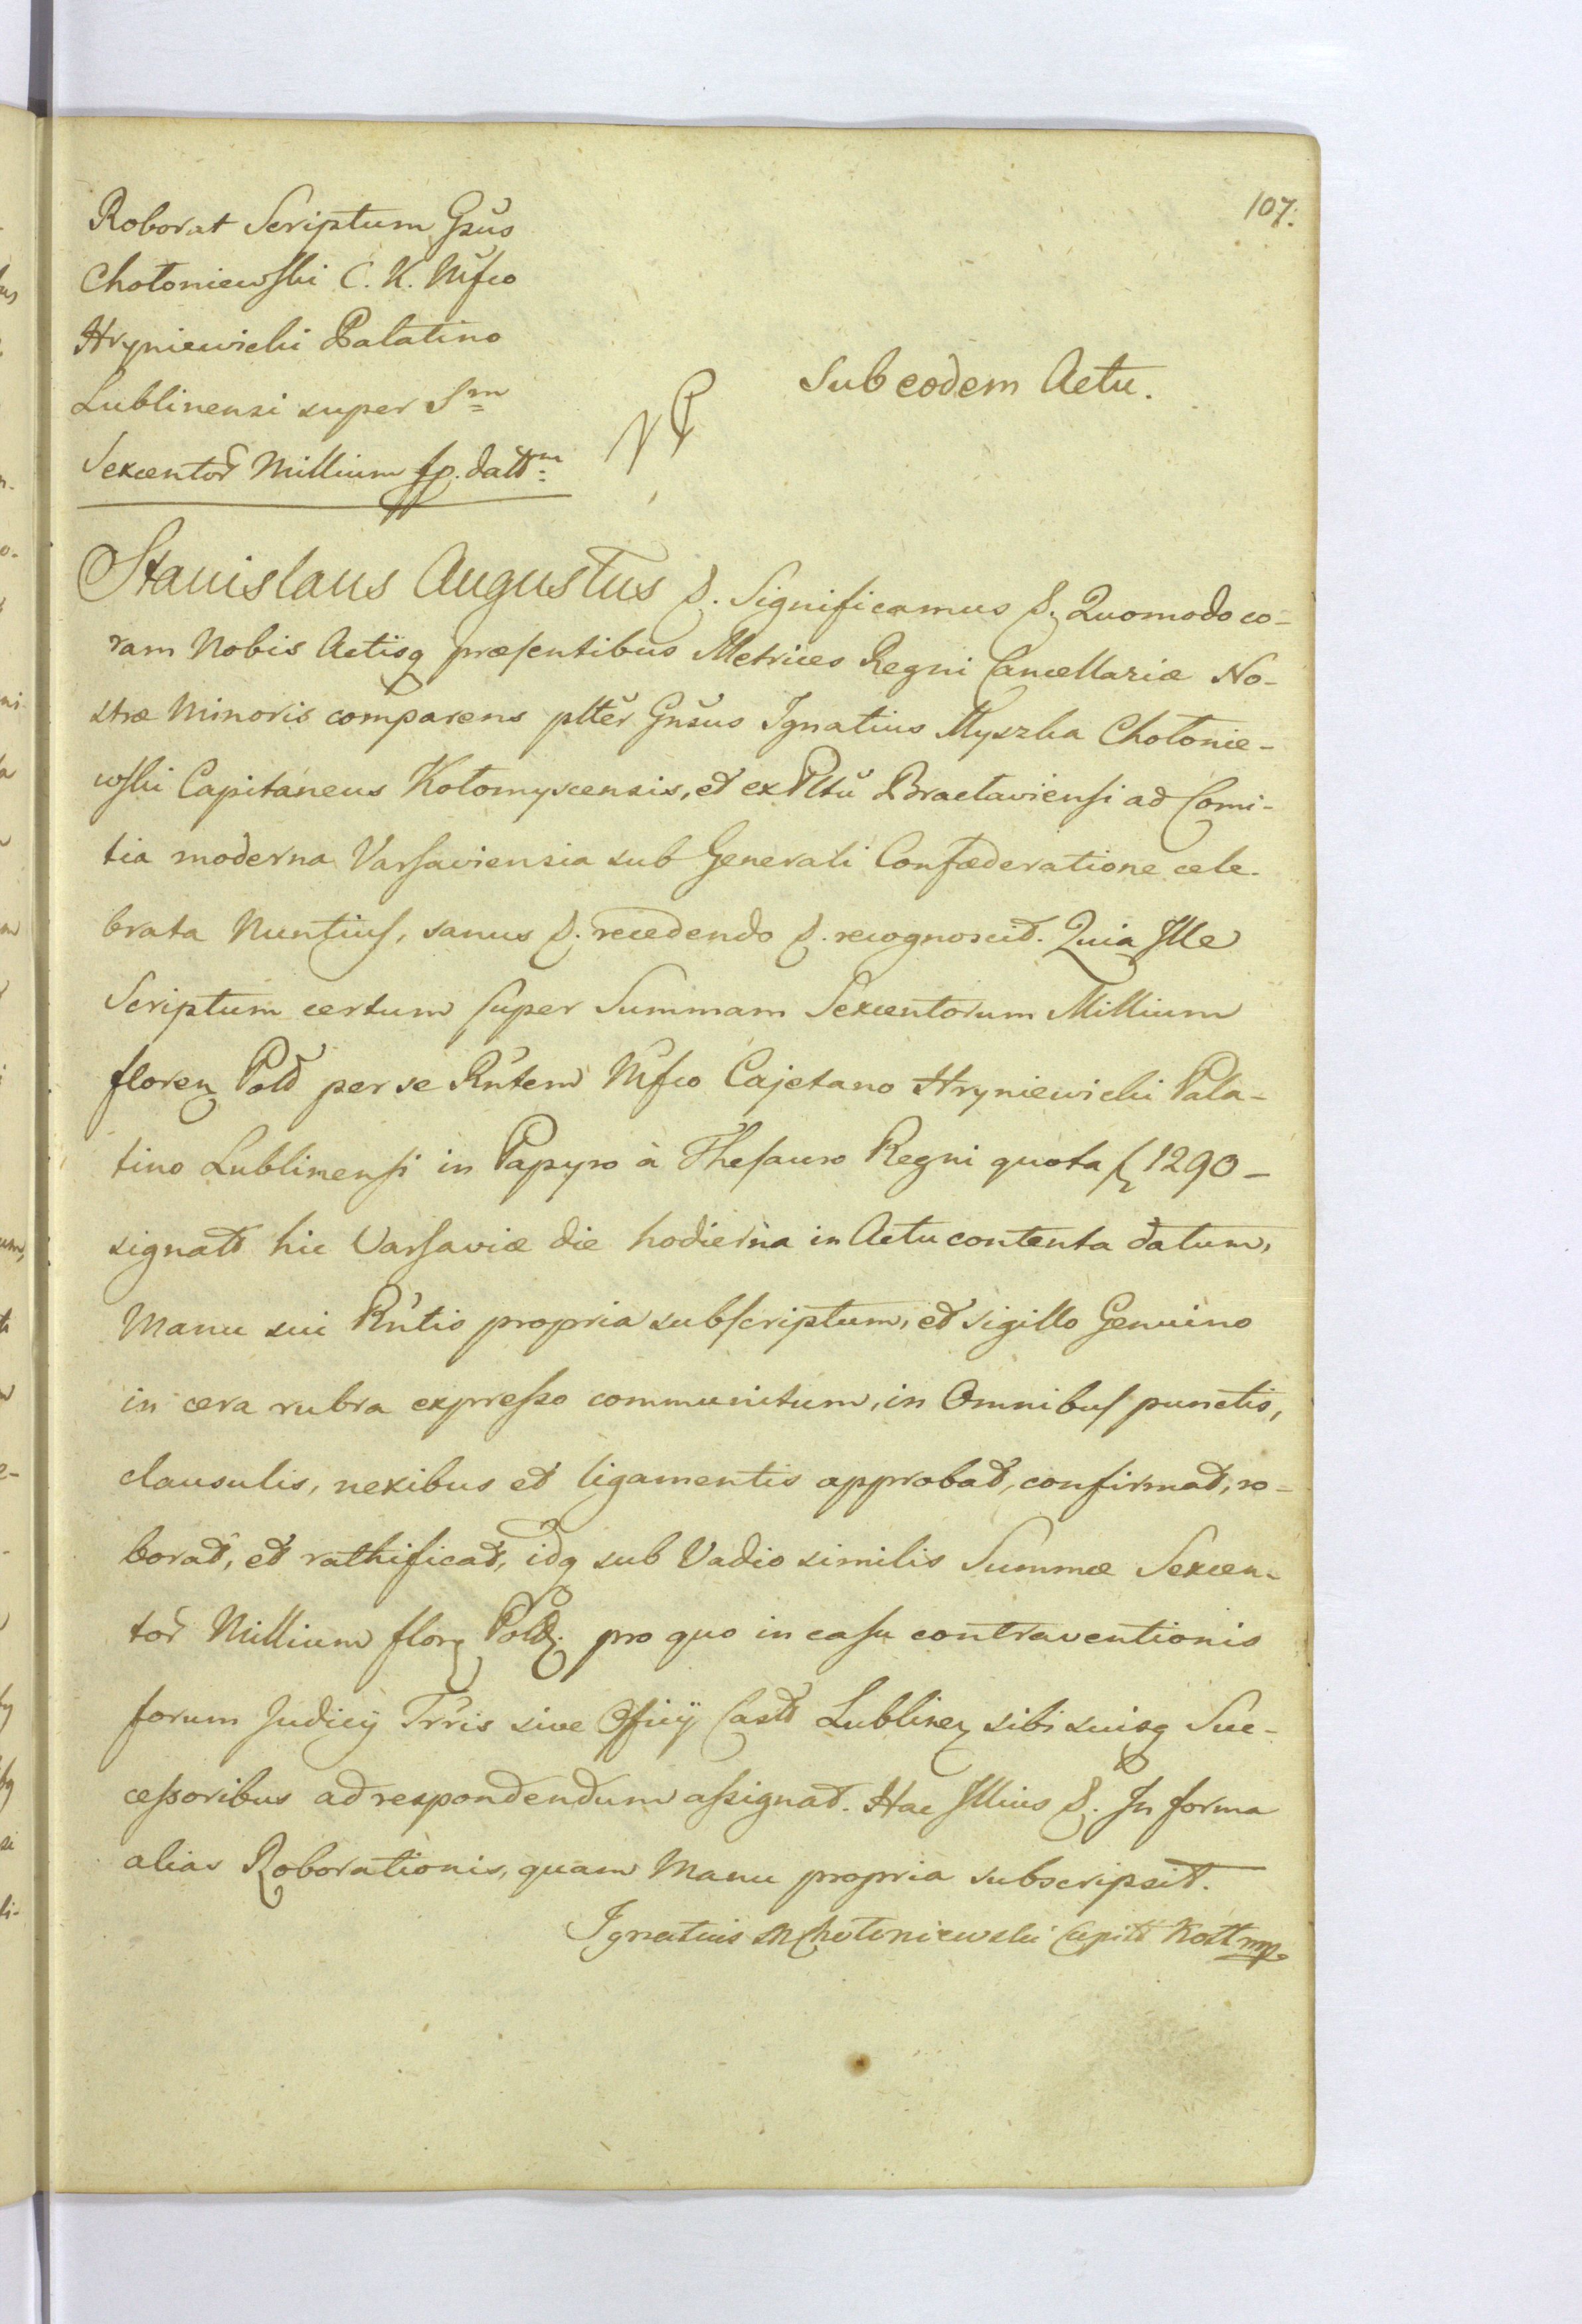 107.
Roborat Scriptum Gsus
Chołoniewski C. K. Mfco
Hryniewicki Palatino
Lublinensi super Sm
Sexcentor Millium fp. dattm
Sub eodem Actu.
Stanislaus Augustus &. Significamus &. Quomodo co-
ram Nobis Actisq præsentibus Metrices Regni Cancellariæ No-
stræ Minoris comparens pltěr Gnsus Ignatius Myszka Chołonie-
wski Capitaneus Kołomyscensis, et ex Pltu Braclaviensi ad Comi-
tia moderna Varsaviensia sub Generali Confæderatione cele-
brata Nuntius, sanus &. recedendo &. recognoscit. Quia Ille
Scriptum certum super Summam Sexcentorum Millium
floren Pold per se Rntem Mfco Cajetano Hryniewicki Pala-
tino Lublinensi in Papyro à Thesauro Regni quota f 1290 –
signatt hic Varsaviæ die hodierna in Actu contenta datum,
Manu sui Rntis propria subscriptum, et sigillo Genuino
in cera rubra expresso communitum, in Omnibus punctis,
clausulis, nexibus et ligamentis approbat, confirmat, ro-
borat, et rathificat, idq sub Vadio similis Summæ Sexcen-
tor Millium flor Pold. pro quo in casu contraventionis
forum Judicij Trris sive Officij Castt Lublinen sibi suisq Suc-
cessoribus ad respondendum assignat. Hac Illius &. In forma
alias Roborationis, quam Manu propria subscripsit.
Ignatius M Chołoniewski Capitt Kołł mp.